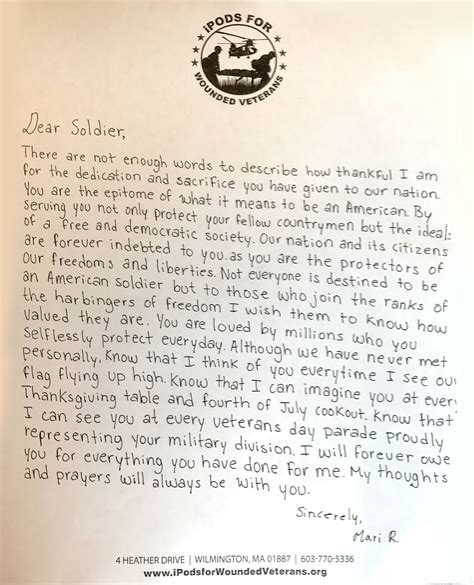 iPODS FOR
WOUNDED VETERANS
Dear Soldier,
There are not enough words to describe how thankful I am
for the dedication and sacrifice you have given to our nation.
You are the epitome of what it means to be an American. By
serving you not only protect your fellow countrymen but the ideal
of a free and democratic society. Our nation and its citizens
are forever indebted to you.as you are the protectors of
our freedoms and liberties. Not everyone is destined to be
an American soldier but to those who join the ranks of
the harbingers of freedom I wish them to know how
valued they are. You are loved by millions who you
selflessly protect everyday. Although we have never met
personally, Know that I think of you everytime I see ou
flag flying up high. Know that I can imagine you at ever
Thanksgiving table and fourth of July cookout. Know that
I can see you at every veterans day parade proudly
representing your military division. I will forever owe
you for everything you have done for me. My thoughts
and prayers will always be with you.
Sincerely,
Mari R.
4 HEATHER DRIVE | WILMINGTON, MA 01887 | 603-770-5336
www.iPodsforWoundedVeterans.org